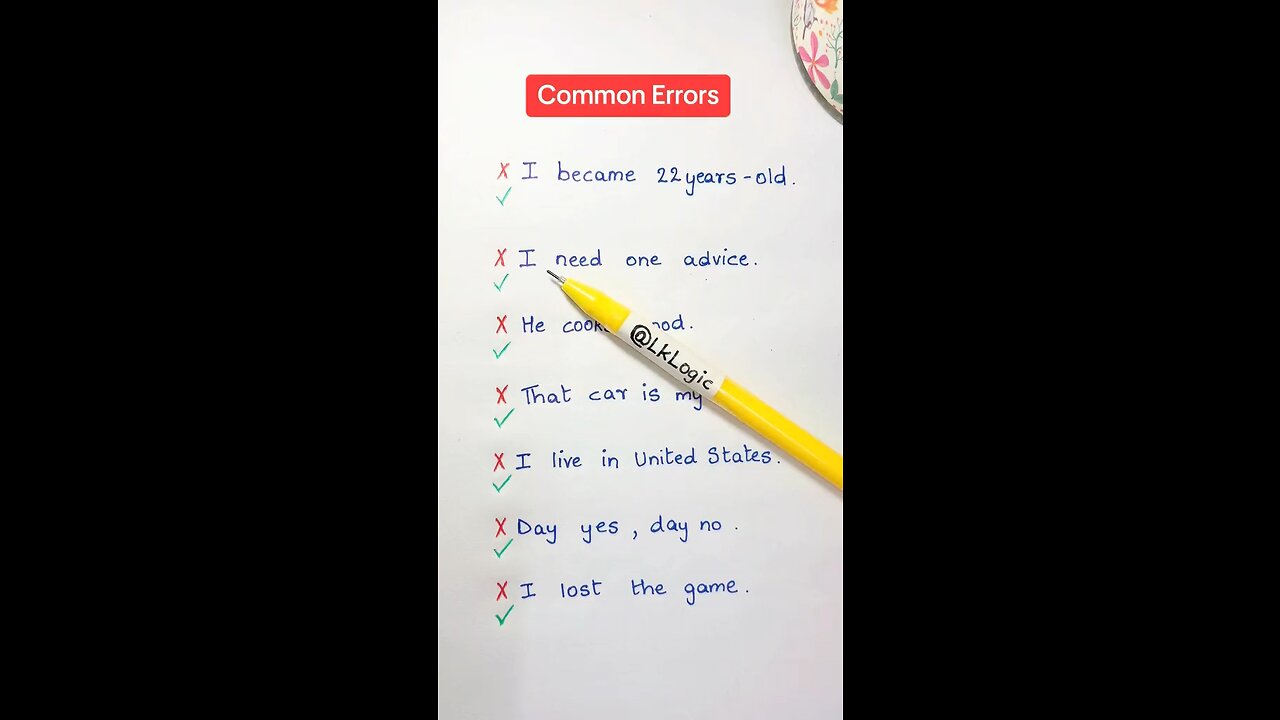 Common Errors
X I became 22 years-old.
✓
X I need one advice.
✓
X He
✓
X That car is my
✓
X I live in United States.
✓
X Day yes, day no.
✓
X I lost the game.
✓
@LkLogic